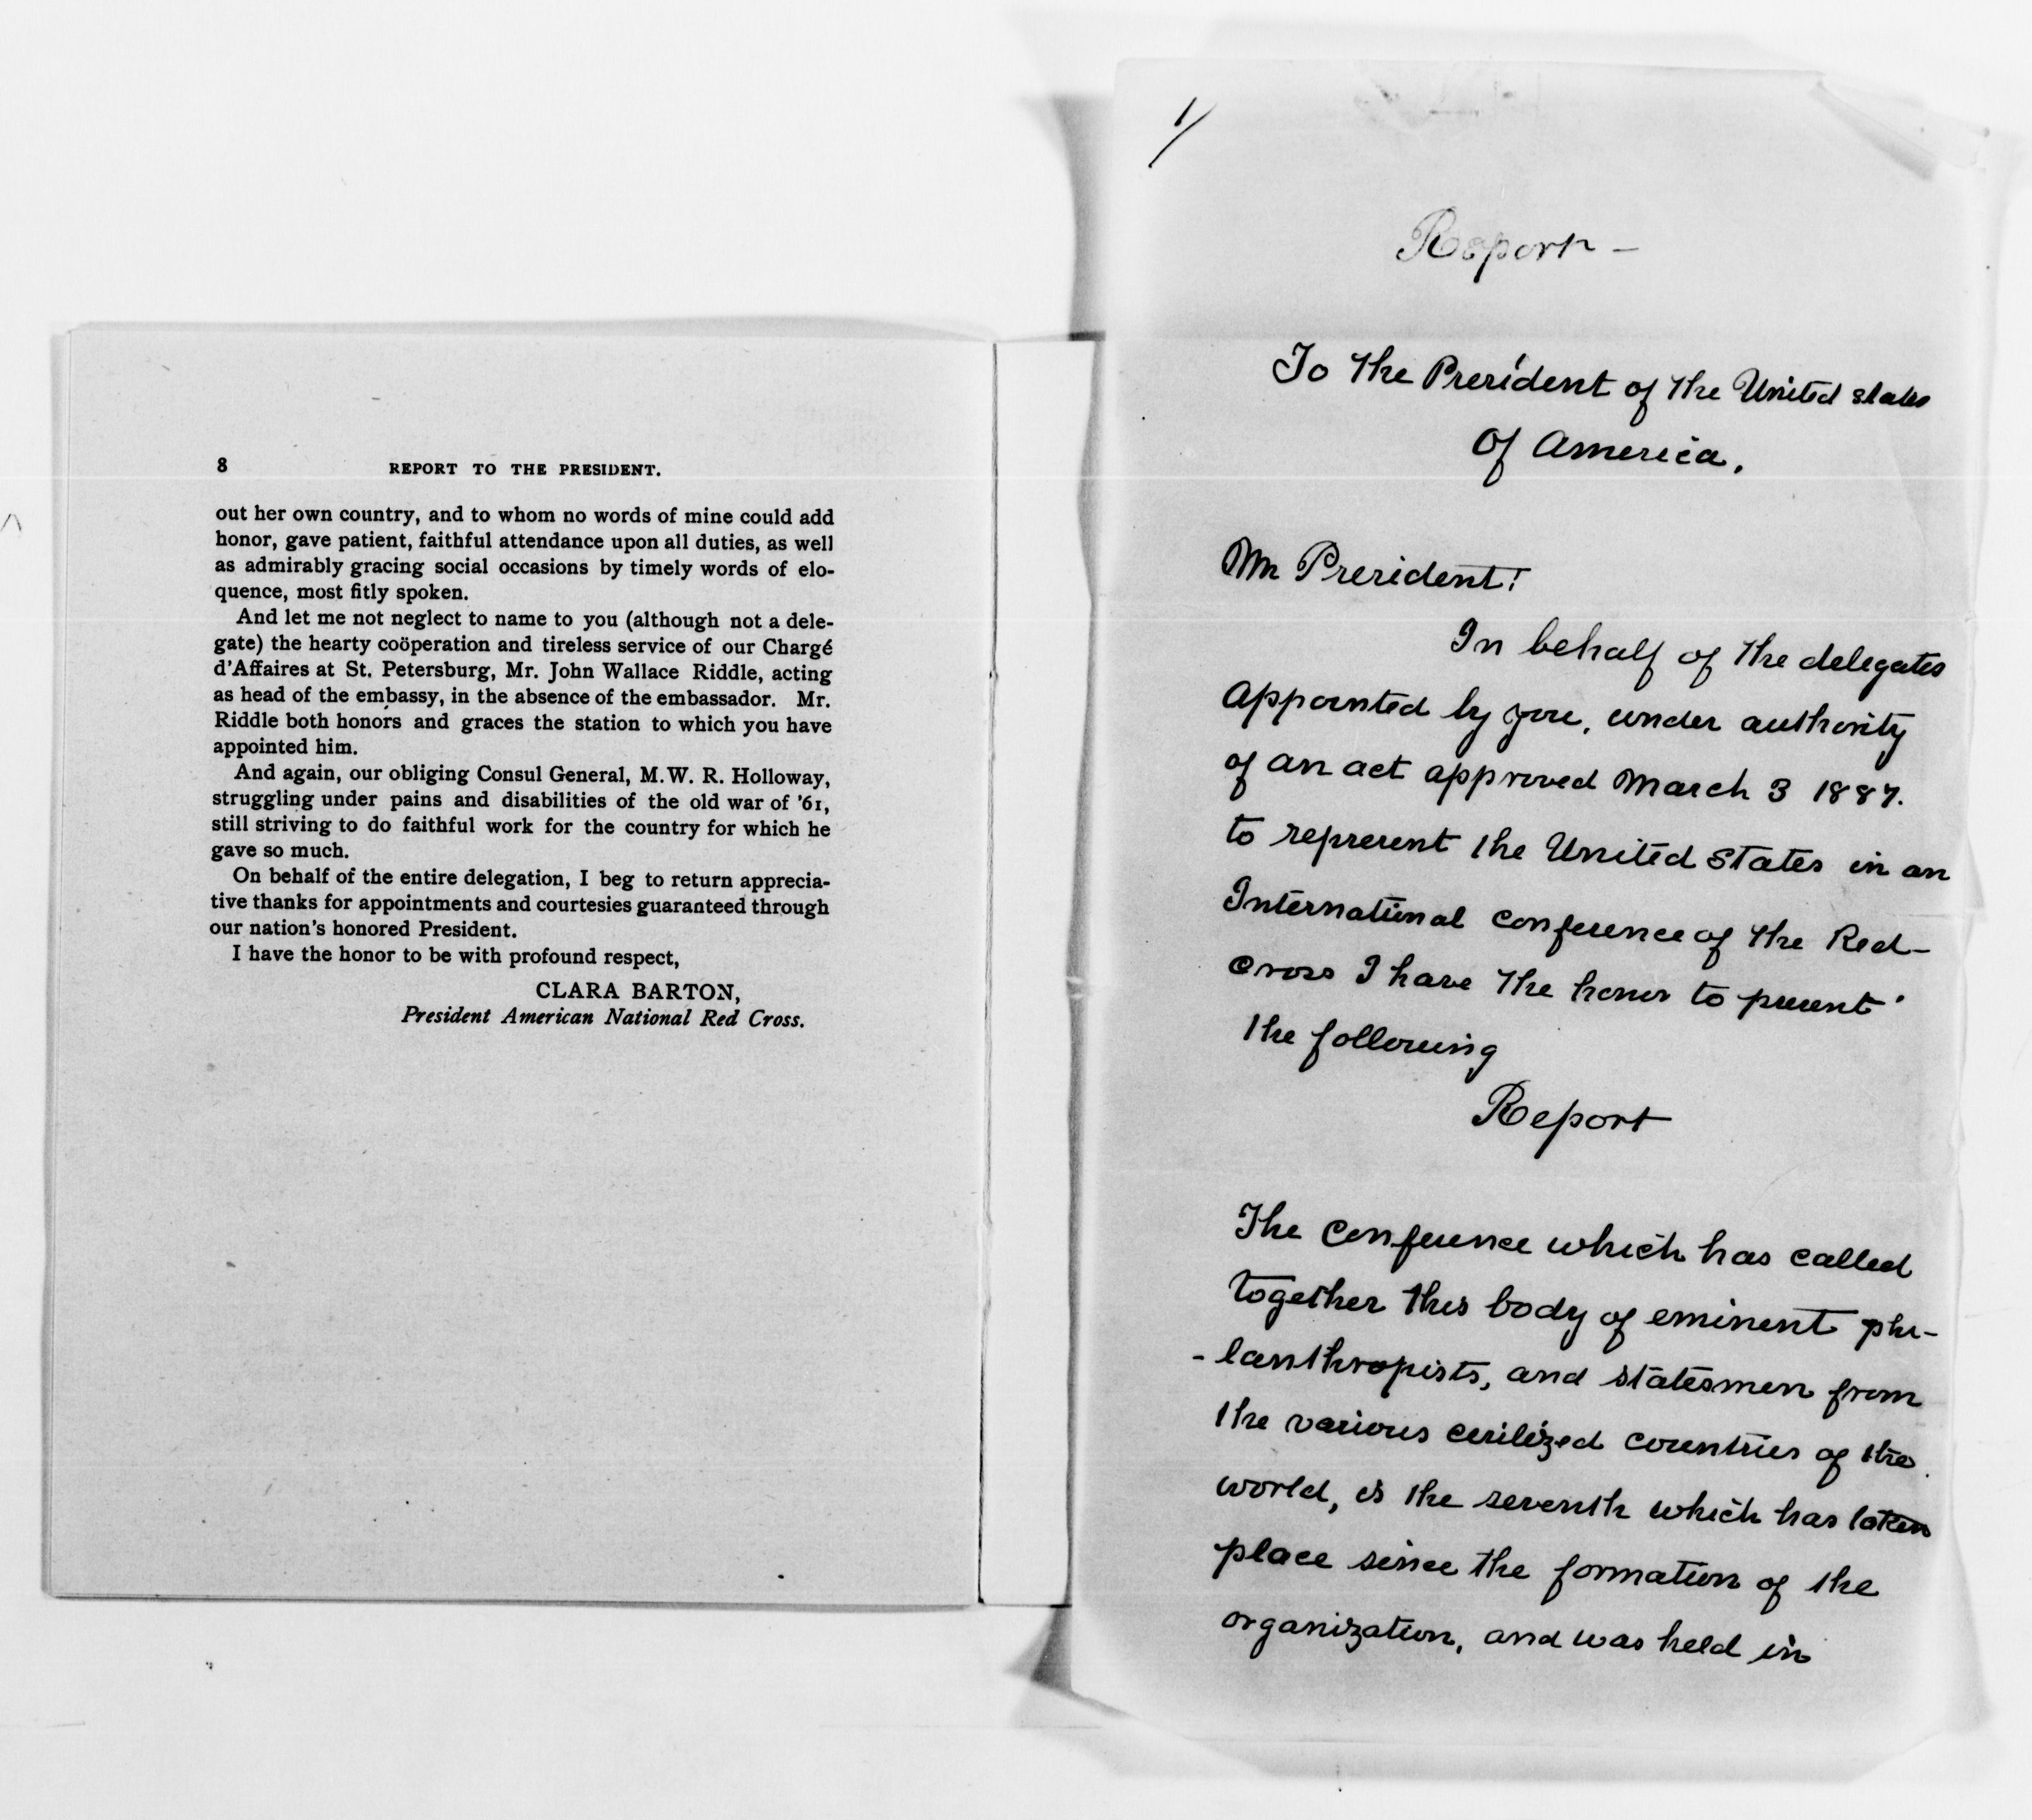 8 REPORT TO THE PRESIDENT.
out her own country, and to whom no words of mine could add
honor, gave patient, faithful attendance upon all duties, as well
as admirably gracing social occasions by timely words of elo-
quence, most fitly spoken.
And let me not neglect to name to you (although not a dele-
gate) the hearty coöperation and tireless service of our Chargé
d'Affaires at St. Petersburg, Mr. John Wallace Riddle, acting
as head of the embassy, in the absence of the embassador. Mr.
Riddle both honors and graces the station to which you have
appointed him.
And again, our obliging Consul General, M.W. R. Holloway,
struggling under pains and disabilities of the old war of '61,
still striving to do faithful work for the country for which he
gave so much.
On behalf of the entire delegation, I beg to return apprecia-
tive thanks for appointments and courtesies guaranteed through
our nation's honored President.
I have the honor to be with profound respect,
CLARA BARTON,
President American National Red Cross.
1/
Report —
To the President of the United States
Of America.
Mr President!
In behalf of the delegates
appointed by you, under authority
of an act approved March 3 1887.
to represent the United States in an
International conference of the Red-
Cross I have the honor to present
the following
Report
The Conference which has called
together this body of eminent phi-
-lanthropists, and statesmen from
the various civilized countries of the
world, is the seventh which has taken
place since the formation of the
organization, and was held in